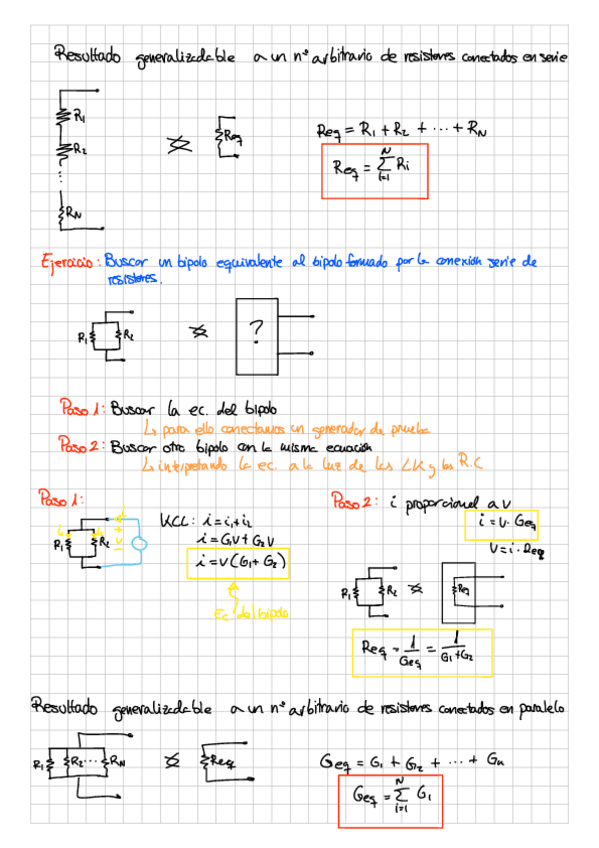 Resultado generalizadable a un nº arbitrario de resistores conectados en serie
R1
R2
...
RN
Req
Req = R1 + R2 + ... + RN
Req = N Σ i=1 Ri
Ejercicio: Buscar un bipolo equivalente al bipolo formado por la conexión serie de
resistores.
R1 R2
?
Paso 1: Buscar la ec. del bipolo
↳ para ello conectamos un generador de prueba
Paso 2: Buscar otro bipolo con la misma ecuación
↳ interpretando la ec. a la luz de las LK y las R.C
Paso 1:
R1 R2 + v -
KCL: i = i1 + i2
i = G1v + G2v
i = v(G1 + G2)
Ec. del bipolo
Paso 2: i proporcional a v
i = v · Geq
v = i · Req
R1 R2 Req
Req = 1/Geq = 1/G1+G2
Resultado generalizadable a un nº arbitrario de resistores conectados en paralelo
R1 R2 ... RN Req
Geq = G1 + G2 + ... + Gn
Geq = N Σ i=1 G1